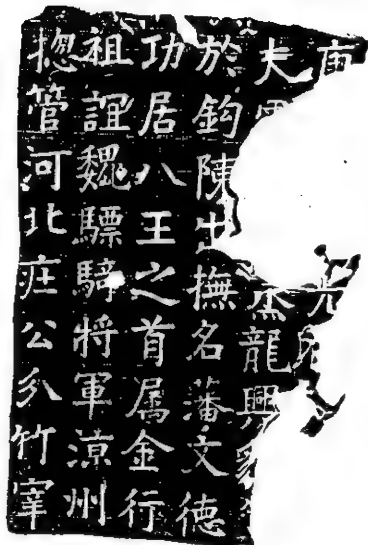 光
夫龍興
於鈎陳出撫名藩文德
功居八王之首属金行
祖誼魏驃騎將軍涼州
揔管河北庄公分竹宰